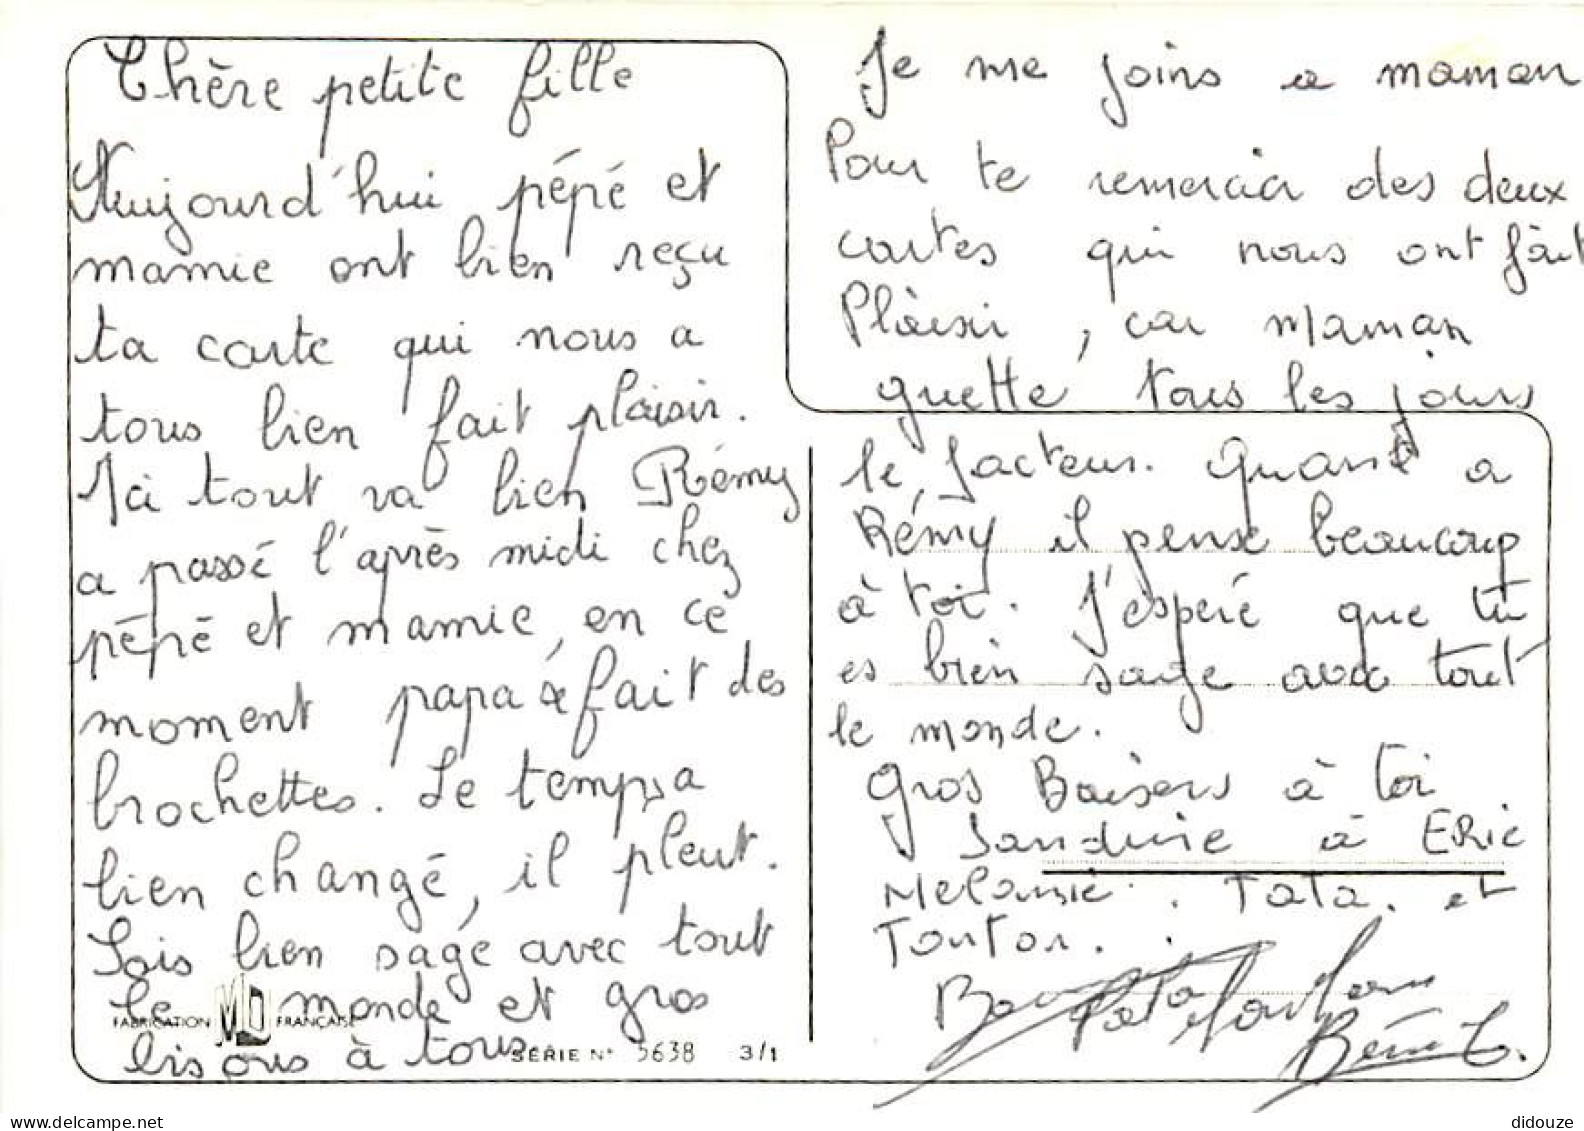 Chère petite fille
Aujourd'hui pépé et
mamie ont bien reçu
ta carte qui nous a
tous bien fait plaisir.
Ici tout va bien Rémy
a passé l'après midi chez
pépé et mamie, en ce
moment papa fait des
brochettes. Le temps a
bien changé, il pleut.
Sois bien sage avec tout
le monde et gros
bisous à tous.
FABRICATION MD FRANÇAISE
SÉRIE N° 5638 3/1
Je me joins a maman
Pour te remercier des deux
cartes qui nous ont fait
Plaisir, car maman
guette tous les jours
le facteur. Quant a
Rémy il pense beaucoup
à toi. J'espère que tu
es bien sage avec tout
le monde.
Gros Baisers à toi
Sandrine à ERic
Melanie. Tata. et
Tonton.
didouze